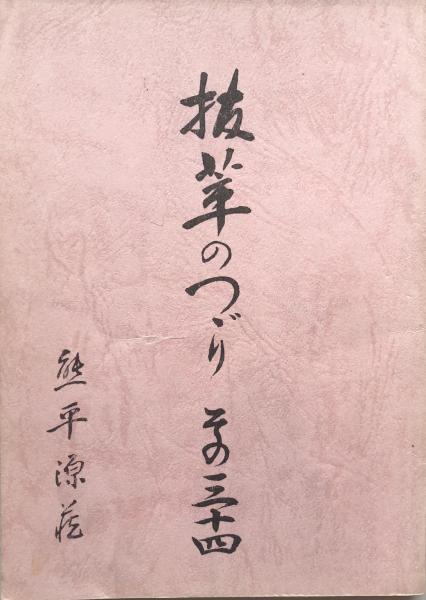 抜萃のつゞり その三十四
熊平源蔵